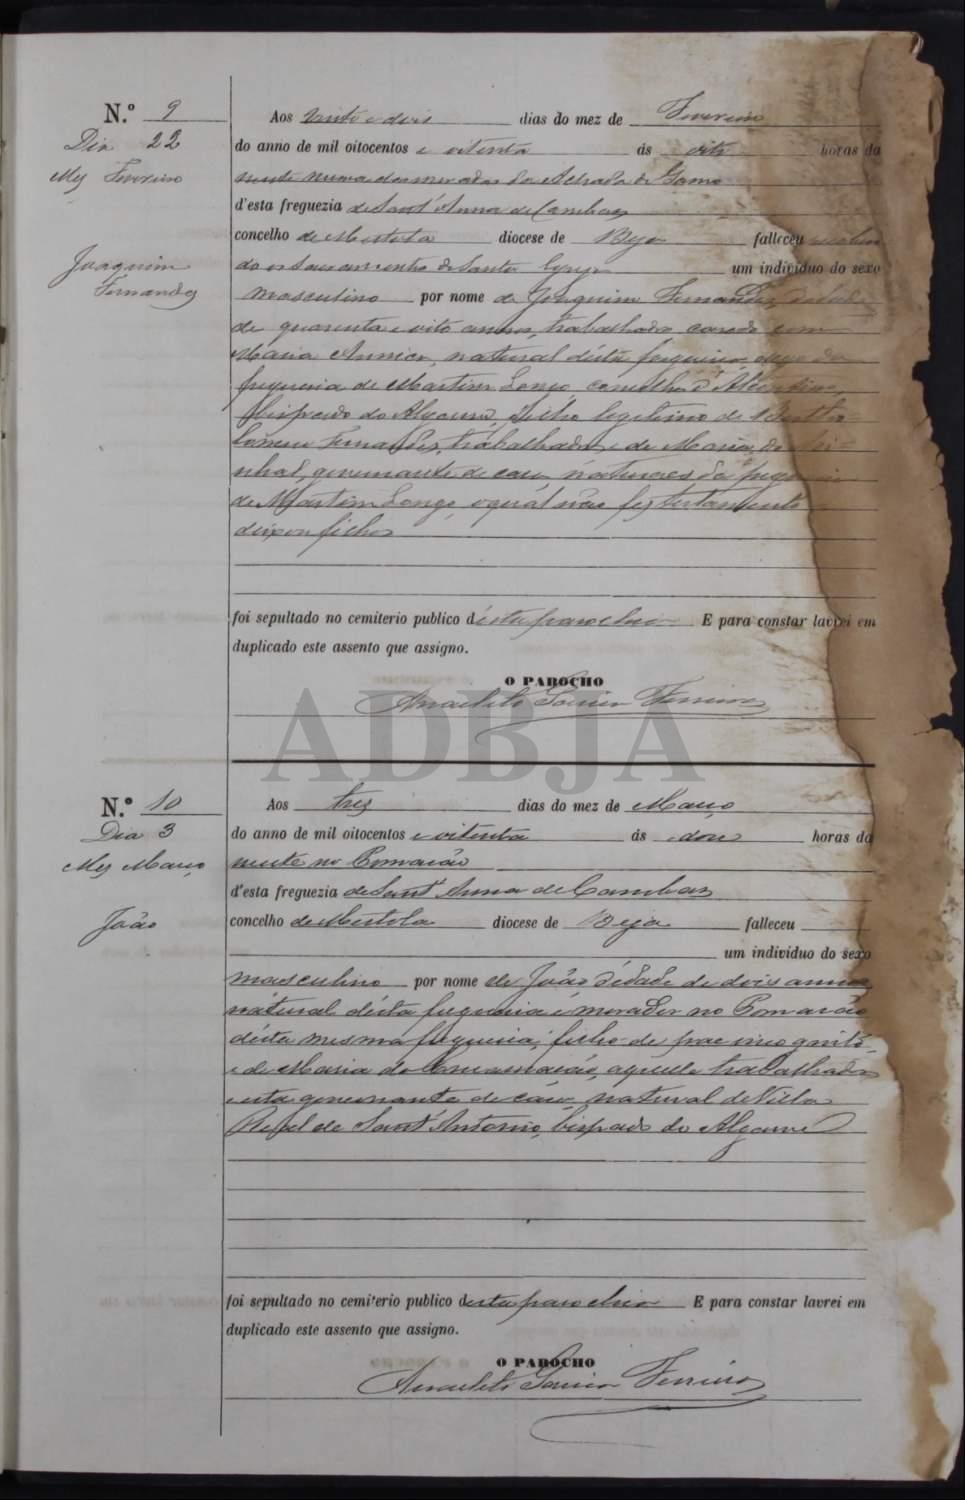 N.º 9
Dia 22
Mez Fevereiro
Joaquim
Fernandes
Aos vinte e dois dias do mez de Fevereiro
do anno de mil oitocentos e oitenta ás oito horas da
noute numa das moradas da Achada do Gamo
d'esta freguezia de Sant'Anna de Cambas
concelho de Mertola diocese de Beja falleceu
os sacramentos da Santa Egreja um individuo do sexo
masculino por nome de Joaquim Fernandes, d'edade
de quarenta e oito annos, trabalhador casado com
Maria Annica, natural d'esta freguezia, elle da
freguezia de Martim Longo concelho d'Alcoutim,
Bispado do Algarve, filho legitimo de Bartho-
lomeu Fernandes, trabalhador, e de Maria do
governante de casa, naturaes da freguezia
de Martim Longo, o qual não fez testamento
deixou filhos
foi sepultado no cemiterio publico d'esta parochia E para constar lavrei em
duplicado este assento que assigno.
O PAROCHO
Anacleto Ferreira
ADBJA
N.º 10
Dia 3
Mez Março
João
Aos trez dias do mez de Março
do anno de mil oitocentos e oitenta ás doze horas da
noute no Pomarão
d'esta freguezia de Sant'Anna de Cambas
concelho de Mertola diocese de Beja falleceu
um individuo do sexo
masculino por nome de João d'edade de dois annos
natural d'esta freguezia e morador no Pomarão
d'esta mesma freguezia, filho de pae incognito
e de Maria da Encarnação, aquelle trabalhador
e esta governante de casa, natural de Villa
Real de Sant'Antonio, bispado do Algarve
foi sepultado no cemiterio publico desta parochia E para constar lavrei em
duplicado este assento que assigno.
O PAROCHO
Anacleto Ferreira